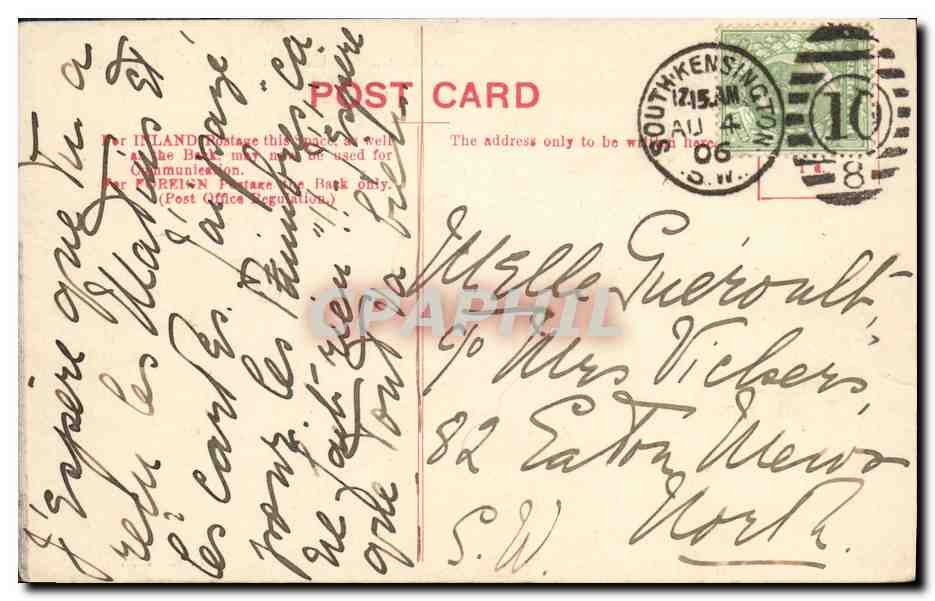 POST CARD
For INLAND Postage this Space, as well
as the Back, may now be used for
Communication.
For FOREIGN Postage the Back only.
(Post Office Regulation.)
The address only to be written here.
SOUTH·KENSINGTON
12.15.AM
AU 4
06
S.W.
8
J'espère que tu a
reçu les Matins et
les cartes. j'ai payé
pour les timbres. ca
ne fait rien!! j'espère
que tout va bien
CPAPHIL
Melle Guéroult,
c/o Mrs Vickers,
82 Eaton Mews
North.
S.W.